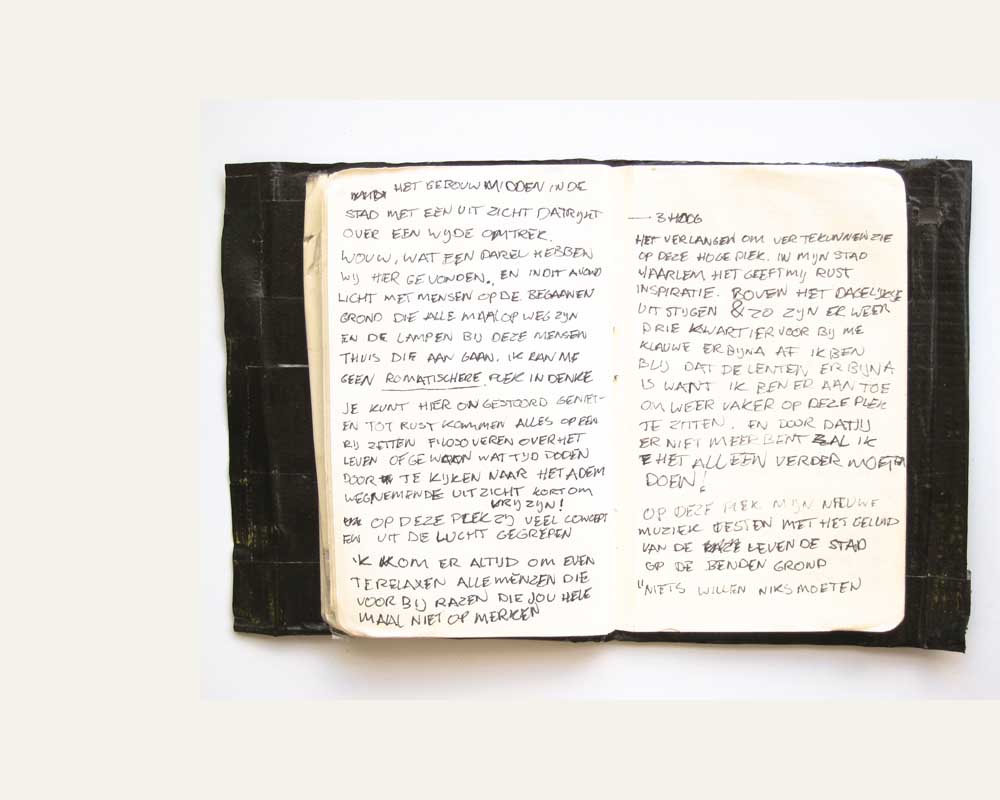 HET GEBOUW MIDDEN IN DE
STAD MET EEN UIT ZICHT DAT RYKT
OVER EEN WYDE OMTREK.
WOUW, WAT EEN PAREL HEBBEN
WIJ HIER GEVONDEN., EN IN DIT AVOND
LICHT MET MENSEN OP DE BEGAANEN
GROND DIE ALLE MAAL OP WEG ZYN
EN DE LAMPEN BIJ DEZE MENSEN
THUIS DIE AAN GAAN. IK KAN ME
GEEN ROMATISCHERE PLEK IN DENKE
JE KUNT HIER ONGESTOORD GENIET-
EN TOT RUST KOMMEN ALLES OP EEN
RIJ ZETTEN FILOSOVEREN OVER HET
LEVEN OF GEWOON WAT TIJD DODEN
DOOR TE KIJKEN NAAR HET ADEM
WEGNEMENDE UIT ZICHT KORT OM
VRIJ ZYN!
OP DEZE PLEK ZIJ VEEL CONCEPT
EN UIT DE LUCHT GEGREPEN
IK KOM ER ALTIJD OM EVEN
TE RELAXEN ALLE MENZEN DIE
VOOR BIJ RAZEN DIE JOU HELE
MAAL NIET OP MERKEN
— 3 HOOG
HET VERLANGEN OM VER TE KUNNEN ZIE
OP DEZE HOGE PLEK. IN MIJN STAD
HAARLEM HET GEEFT MIJ RUST
INSPIRATIE. BOVEN HET DAGELIJKSE
UIT STIJGEN & ZO ZYN ER WEER
DRIE KWARTIER VOOR BIJ ME
KLAUWE ER BIJNA AF IK BEN
BLIJ DAT DE LENTEN ER BIJNA
IS WANT IK BEN ER AAN TOE
OM WEER VAKER OP DEZE PLEK
TE ZITTEN. EN DOOR DAT JIJ
ER NIET MEER BENT ZAL IK
HET ALLEEN VERDER MOETEN
DOEN!
OP DEZE PLEK MIJN NIEUWE
MUZIEK TESTEN MET HET GELUID
VAN DE LEVENDE STAD
OP DE BENDEN GROND
"NIETS WILLEN NIKS MOETEN